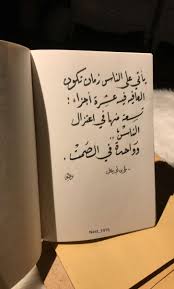 يأتي على الناس زمان تكون
العافية فيه عشرة أجزاء :
تسعة منها في اعتزال
الناس ..
وواحدة في الصمت .
- علي بن أبي طالب